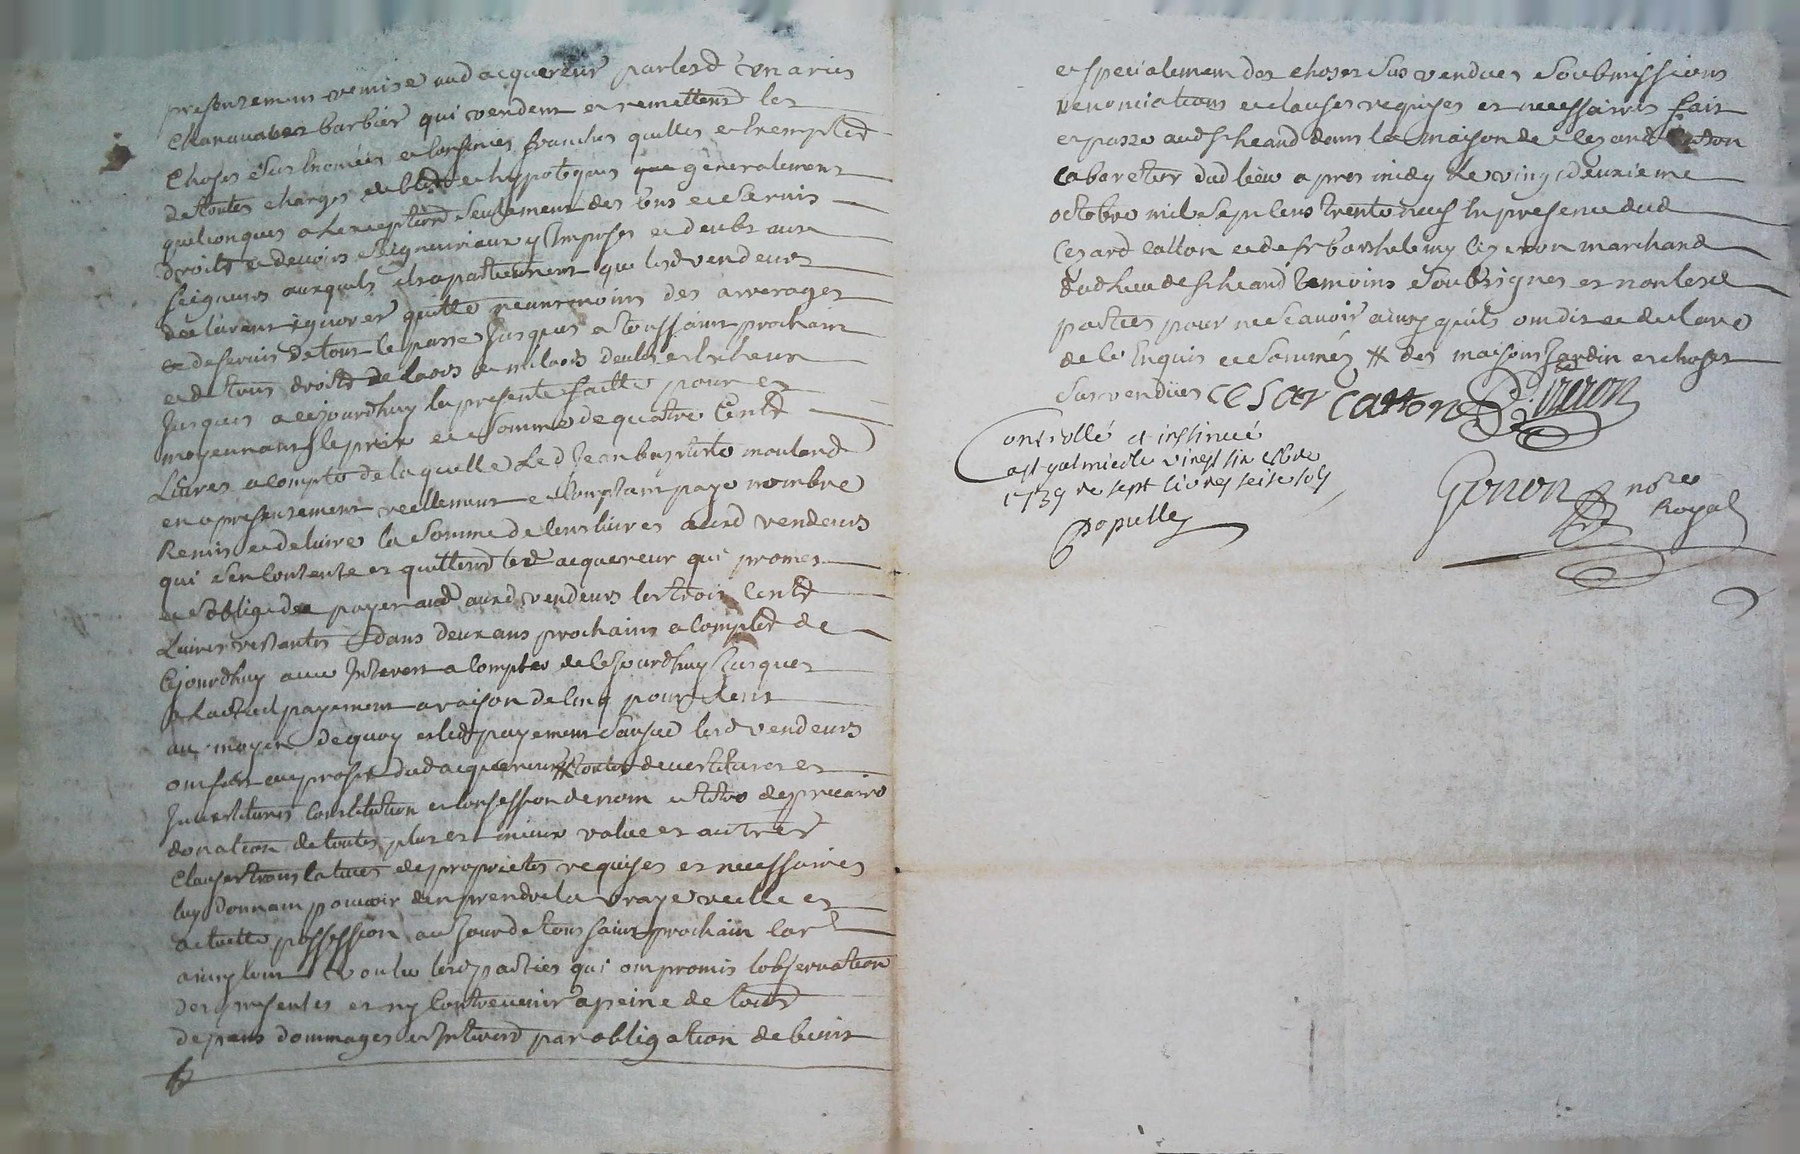 presentement remise aud acquereur par lesd
Charavabos barbier qui vendent et remettent les
choses sus énoncées et confinées franches quittes et exemptes
de toutes charges et hypoteques generalement
quelconques a lexception seulement des cens et servis
droits et devoirs seigneuriaux y Imposes et deubs aux
seigneurs auxquels ils apartiennent que lesd vendeurs
declarent ignorer quitte neantmoins des arrerages
de servis de tout le passé Jusques a toussaint prochain
et de tous droits de laods et milaods deubs et echeux
Jusques a cejourdhuy la presente faitte pour et
moyennant le prix et somme de quatre Cents
Livres a compte de laquelle Led Jean baptiste
en a presentement reellement et Comptant payé nombré
Remis et delivré la somme de Cens livres ausd vendeurs
qui sen Contente et quittent led acquereur qui promet
et soblige de payer ausd vendeurs les trois Cents
Livres restantes dans deux ans prochains a compter de
Cejourdhuy avec Interest a Compter de Cejourdhuy Jusques
a lactuel payement a raison de Cinq pour Cent
au moyen dequoy et led payement lesd vendeurs
ont fait au profit dud acquereur toutes devestitures et
Investitures Constitution et Confession de nom et titre de precaire
donation de toutes plus et mieux value et autres
Clauses translatives de proprietes requises et necessaires
luy donnant pouvoir den prendre la vraye reelle et
actuelle possession au Jour de toussaint prochain Car
ainsy lont voulu lesd parties qui ont promis lobservation
des presentes et ny Contrevenir a peine de tous
depens dommages et Interest par obligation de biens
et specialement des choses sus vendues Soubmissions
renonciations et clauses requises et necessaires fait
et passé aud dans la maison de
Cabaretier dud lieu apres midy le vingt deuxieme
octobre mil sept Cens trente neuf En presence dud
Cezard Catton et de sr barthelemy marchand
dud lieu de temoins Soubsignes et non lesd
parties pour ne scavoir ainsy quils ont dit et declaré
de Ce Enquis et Sommés # des maisons Jardin et choses
Sus vendües CESAR CATTON
Controllé et insinué
a st galmier le vingt six 8bre
1739 re sept livres seise sols
Populle
Gonon nore
Royal